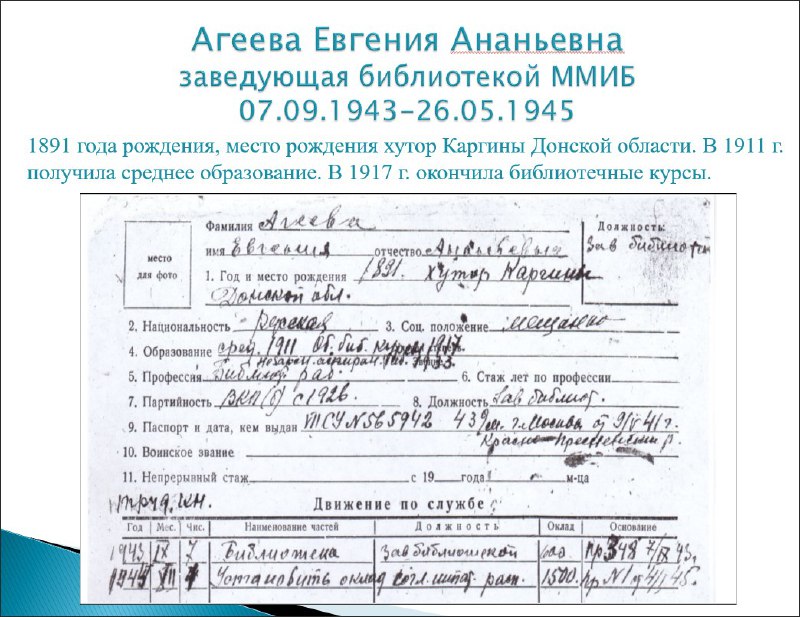 Агеева Евгения Ананьевна
заведующая библиотекой ММИБ
07.09.1943-26.05.1945
1891 года рождения, место рождения хутор Каргины Донской области. В 1911 г.
получила среднее образование. В 1917 г. окончила библиотечные курсы.
место
для фото
Фамилия Агеева
имя Евгения отчество Ананьевна
Должность:
Зав библиотек
1. Год и место рождения 1891. хутор Каргины
Донской обл.
2. Национальность Русская 3. Соц. положение мещанка
4. Образование сред. 1911 Об. биб. курсы 1917.
5. Профессия Библиот. раб. 6. Стаж лет по профессии
7. Партийность ВКП(б) с 1926. 8. Должность Зав библиот.
9. Паспорт и дата, кем выдан N 565942 43 г. Москвы от
10. Воинское звание
11. Непрерывный стаж с 19 года м-ца
труд. кн.
Движение по службе
Год Мес. Чис. Наименование частей Должность Оклад Основание
1943 IX 7 Библиотека Зав библиотекой 600. пр 348 7/IX 43.
Установить оклад согл. штат. расп. 1500. пр N1